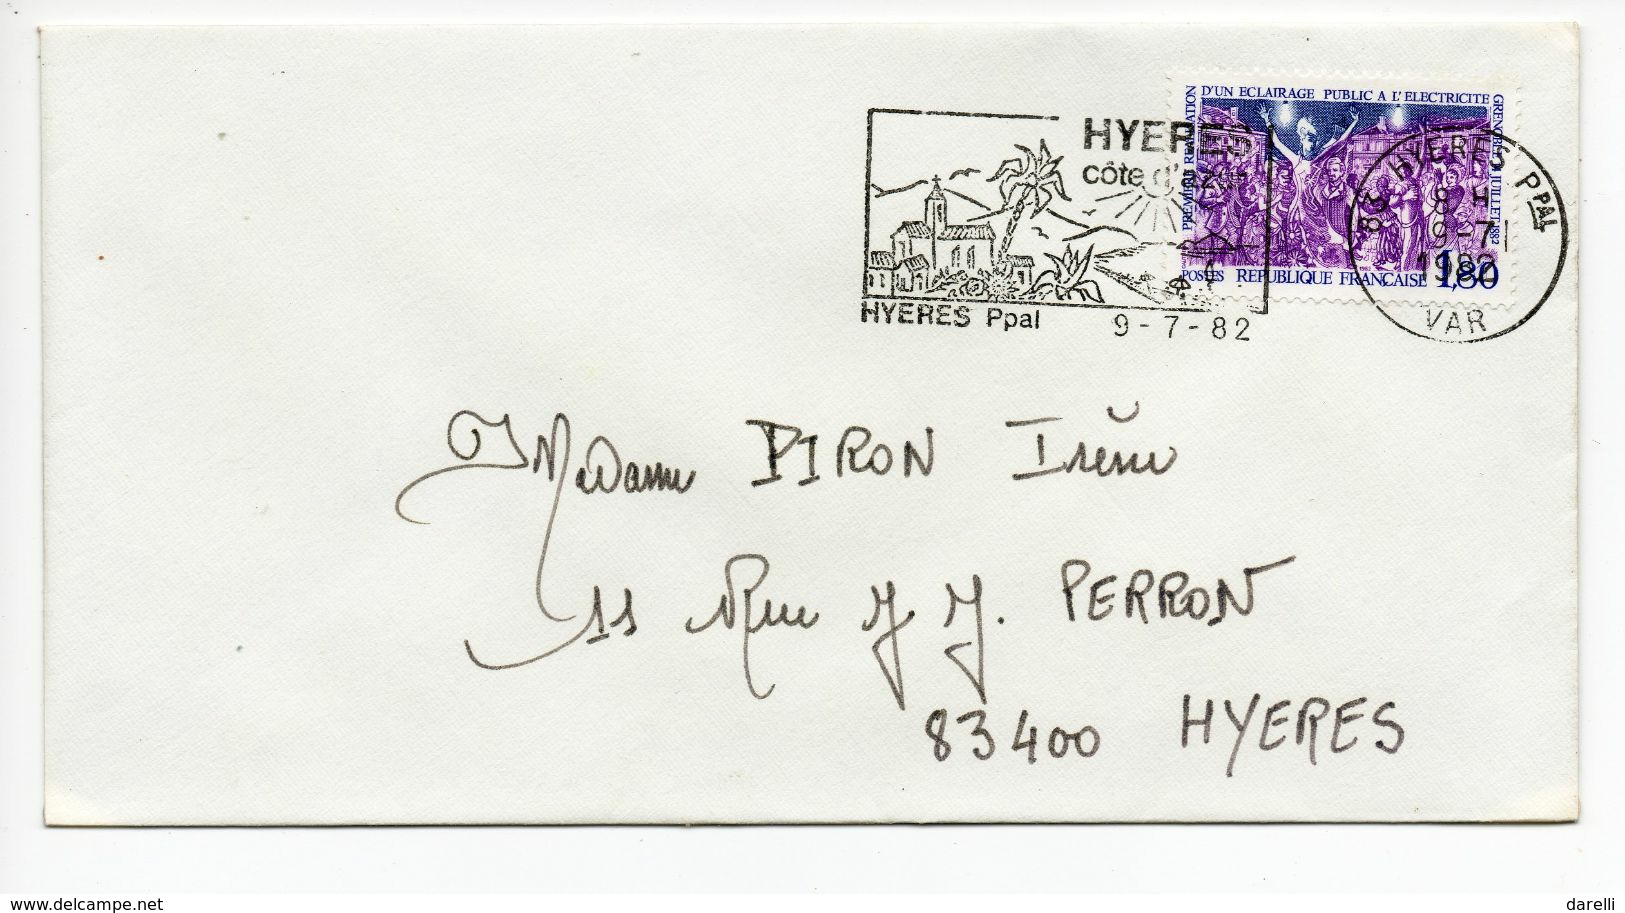 PREMIERE REALISATION D'UN ECLAIRAGE PUBLIC A L'ELECTRICITE GRENOBLE JUILLET 1882
POSTES REPUBLIQUE FRANÇAISE 1,80
HYERES
côte d'azur
HYERES Ppal 9-7-82
83 HYERES PPAL
8 H
9-7
1982
VAR
Madame PIRON Irène
11 Rue J J. PERRON
83400 HYERES
www.delcampe.net
darelli